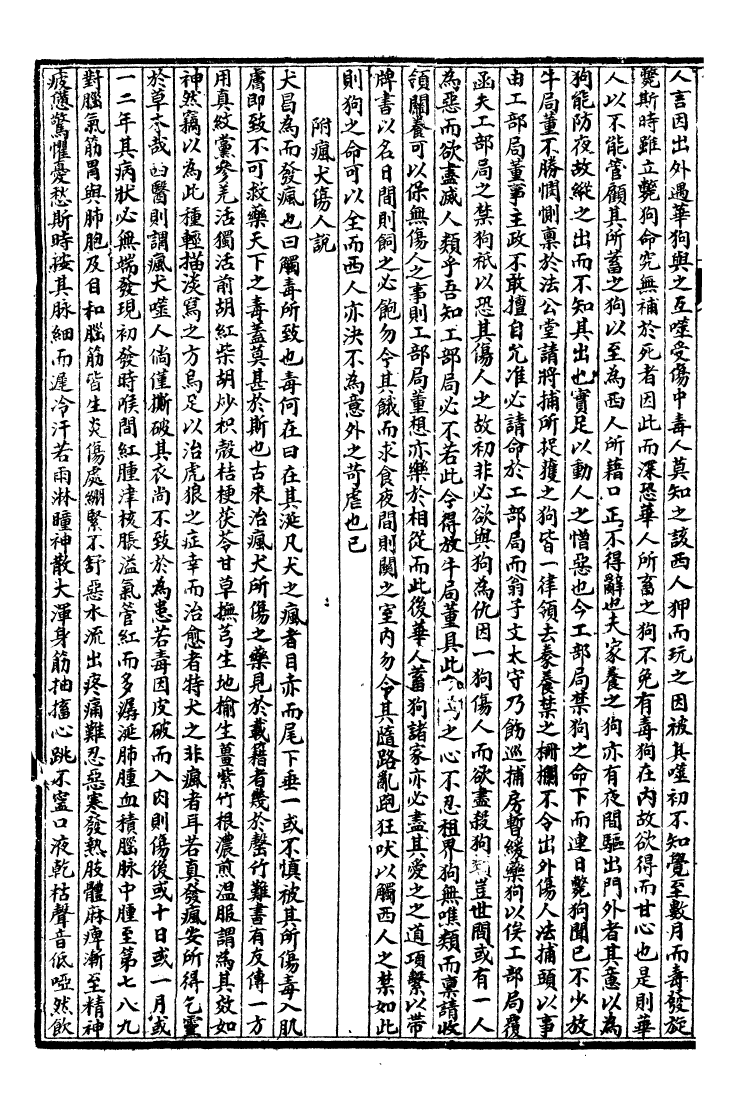 人言因出外遇華狗與之互噬受傷中毒人莫知之該西人狎而玩之因被其噬初不知覺至數月而毒發旋
斃斯時雖立斃狗命究無補於死者因此而深恐華人所畜之狗不免有毒狗在內故欲得而甘心也是則華
人以不能管顧其所蓄之狗以至為西人所藉口正不得辭也夫家養之狗亦有夜間驅出門外者其意以為
狗能防夜故縱之出而不知其出也實足以動人之憎惡也今工部局禁狗之命下而連日斃狗聞已不少放
牛局董不勝憫惻稟於法公堂請將捕所捉獲之狗皆一律領去豢養禁之柵欄不令出外傷人法捕頭以事
由工部局董事主政不敢擅自允准必請命於工部局而翁子文太守乃飭巡捕房暫緩藥狗以俟工部局覆
函夫工部局之禁狗祇以恐其傷人之故初非必欲與狗為仇因一狗傷人而欲盡殺狗類豈世間或有一人
為惡而欲盡滅人類乎吾知工部局必不若此今得放牛局董具此之心不忍租界狗無噍類而稟請收
領關養可以保無傷人之事則工部局董想亦樂於相從而此後華人蓄狗諸家亦必盡其愛之之道項繫以帶
牌書以名日間則飼之必飽勿令其餓而求食夜間則關之室內勿令其隨路亂跑狂吠以觸西人之禁如此
則狗之命可以全而西人亦決不為意外之苛虐也已
附瘋犬傷人說
犬昌為而發瘋也曰觸毒所致也毒何在曰在其涎凡犬之瘋者目赤而尾下垂一或不慎被其所傷毒入肌
膚即致不可救藥天下之毒蓋莫甚於斯也古來治瘋犬所傷之藥見於載籍者幾於罄竹難書有友傳一方
用真紋黨參羌活獨活前胡紅柴胡炒枳殼桔梗茯苓甘草撫芎生地榆生薑紫竹根濃煎溫服謂為其效如
神然竊以為此種輕描淡寫之方烏足以治虎狼之症幸而治愈者特犬之非瘋者耳若真發瘋安所得乞靈
於草本哉西醫則謂瘋犬噬人倘僅撕破其衣尚不致於為患若毒因皮破而入肉則傷後或十日或一月或
一二年其病狀必無端發現初發時喉間紅腫津核脹溢氣管紅而多潺涎肺腫血積腦脉中腫至第七八九
對腦氣筋胃與肺胞及目和腦筋皆生炎傷處繃緊不舒惡水流出疼痛難忍惡寒發熱肢體麻痺漸至精神
疲憊驚懼憂愁斯時按其脉細而遲冷汗若雨淋瞳神散大渾身筋抽搐心跳不寧口液乾枯聲音低啞然飲